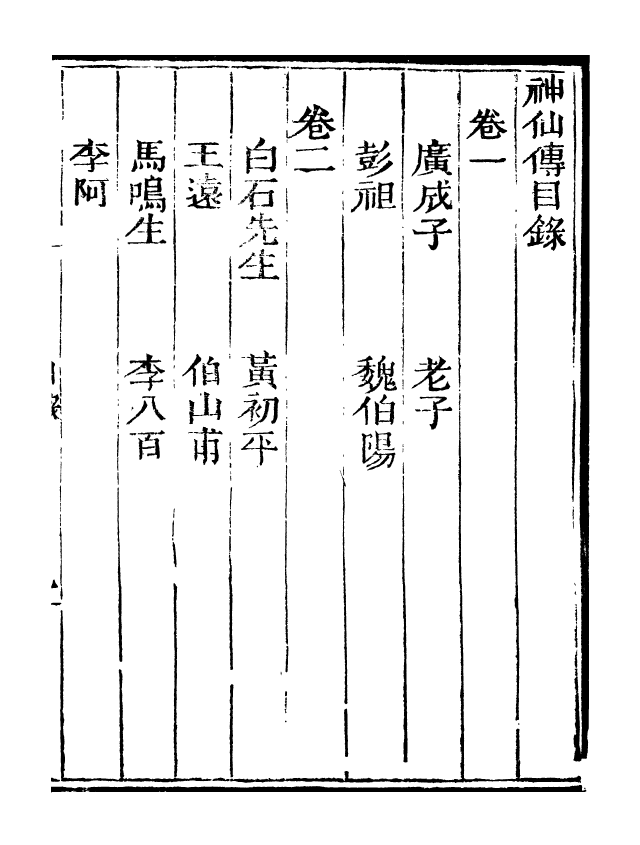 神仙傳目錄
卷一
廣成子 老子
彭祖 魏伯陽
卷二
白石先生 黃初平
王遠 伯山甫
馬鳴生 李八百
李阿